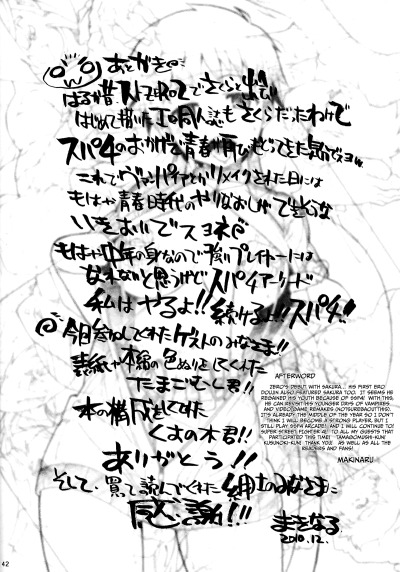 あとがき
はるか昔ストZERO2でさくらと出て
はじめて描いたエロ同人誌もさくらだったわけで
スパ4のおかげで青春が再びもどってきた気がでスヨw
これでヴァンパイアとかリメイクされた日には
もはや青春時代のやりなおしができそうな
いきおいでスヨネ
もはや中年の身なので強いプレイヤーには
なれないと思うけどスパ4アーケード
私はやるよ!!続けるよ!!スパ4!!
@今回参加してくれたゲストのみなさま!!
表紙や本編の色ぬりをしてくれた
たまごむし君!!
本の構成をしてくれた
くすの木君!!
ありがとう!!
そして、買って読んでくれた紳士のみなさまに
感謝!!!
まきなる
2010.12.
AFTERWORD
ZERO'S DEBUT WITH SAKURA... HIS FIRST ERO
DOUJIN ALSO FEATURED SAKURA TOO. IT SEEMS HE
REGAINED HIS YOUTH BECAUSE OF SSF4! WITH THIS,
HE CAN REVISIT HIS YOUNGER DAYS OF VAMPIRES,
AND VIDEO GAME REMAKES (NOT SURE ABOUT THIS).
IT'S ALREADY THE MIDDLE OF THE YEAR SO I DON'T
THINK I WILL BECOME A STRONG PLAYER, BUT I
STILL PLAY SSF4 ARCADE!! AND I WILL CONTINUE TO!
SUPER STREET FIGHTER 4! TO ALL MY GUESTS THAT
PARTICIPATED THIS TIME! TAMAGOMUSHI-KUN!
KUSUNOKI-KUN! THANK YOU! AS WELL AS ALL THE
READERS AND FANS!
MAKINARU
42